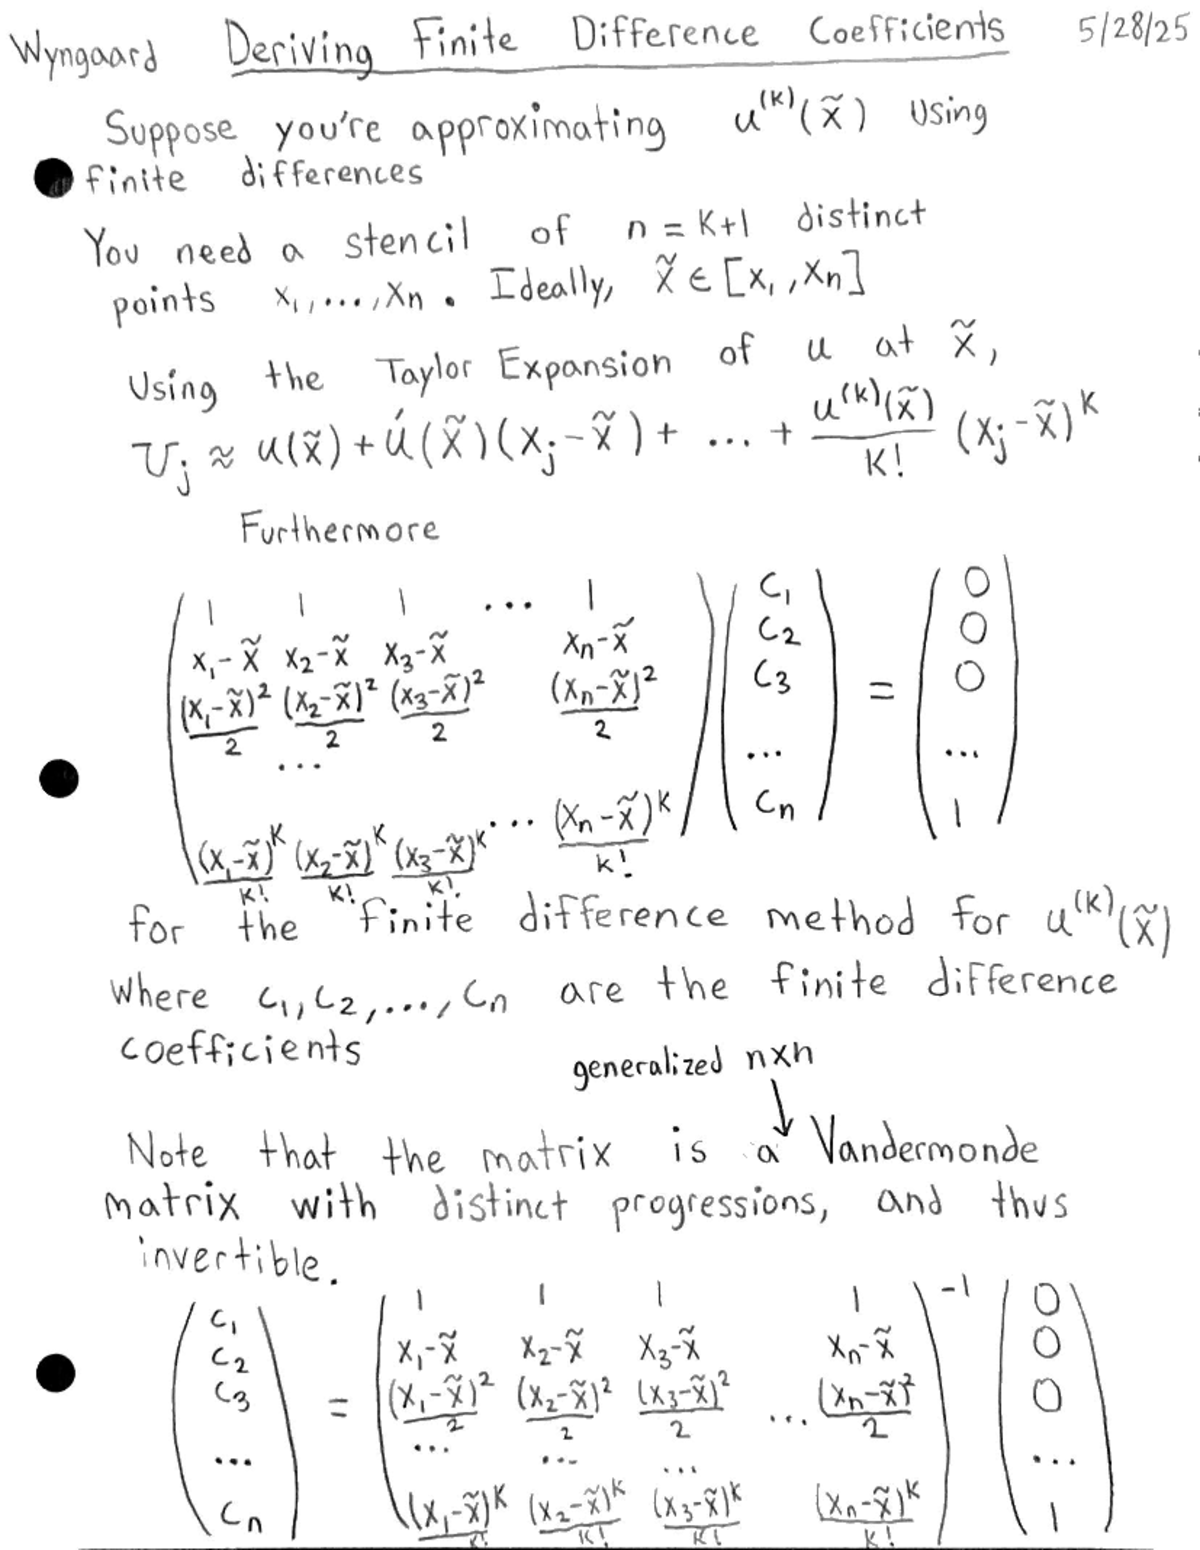 Wyngaard Deriving Finite Difference Coefficients 5/28/25
Suppose you're approximating u^(k)(x̃) using
finite differences
You need a stencil of n = k+1 distinct
points x₁,...,xₙ. Ideally, x̃ ∈ [x₁,xₙ]
Using the Taylor Expansion of u at x̃,
Uⱼ ≈ u(x̃) + ú(x̃)(xⱼ-x̃) + ... + u^(k)(x̃)/k! (xⱼ-x̃)^k
Furthermore
( 1 1 1 ... 1 ) ( c₁ ) = ( 0 )
x₁-x̃ x₂-x̃ x₃-x̃ xₙ-x̃ c₂ 0
(x₁-x̃)²/2 (x₂-x̃)²/2 (x₃-x̃)²/2 (xₙ-x̃)²/2 c₃ 0
... ... ...
(x₁-x̃)^k/k! (x₂-x̃)^k/k! (x₃-x̃)^k/k! ... (xₙ-x̃)^k/k! cₙ 1
for the finite difference method for u^(k)(x̃)
where c₁,c₂,...,cₙ are the finite difference
coefficients
generalized nxn
Note that the matrix is a Vandermonde
matrix with distinct progressions, and thus
invertible.
( c₁ ) = ( 1 1 1 1 )^-1 ( 0 )
c₂ x₁-x̃ x₂-x̃ x₃-x̃ xₙ-x̃ 0
c₃ (x₁-x̃)²/2 (x₂-x̃)²/2 (x₃-x̃)²/2 ... (xₙ-x̃)²/2 0
... ... ... ... ...
cₙ (x₁-x̃)^k/k! (x₂-x̃)^k/k! (x₃-x̃)^k/k! (xₙ-x̃)^k/k! 1